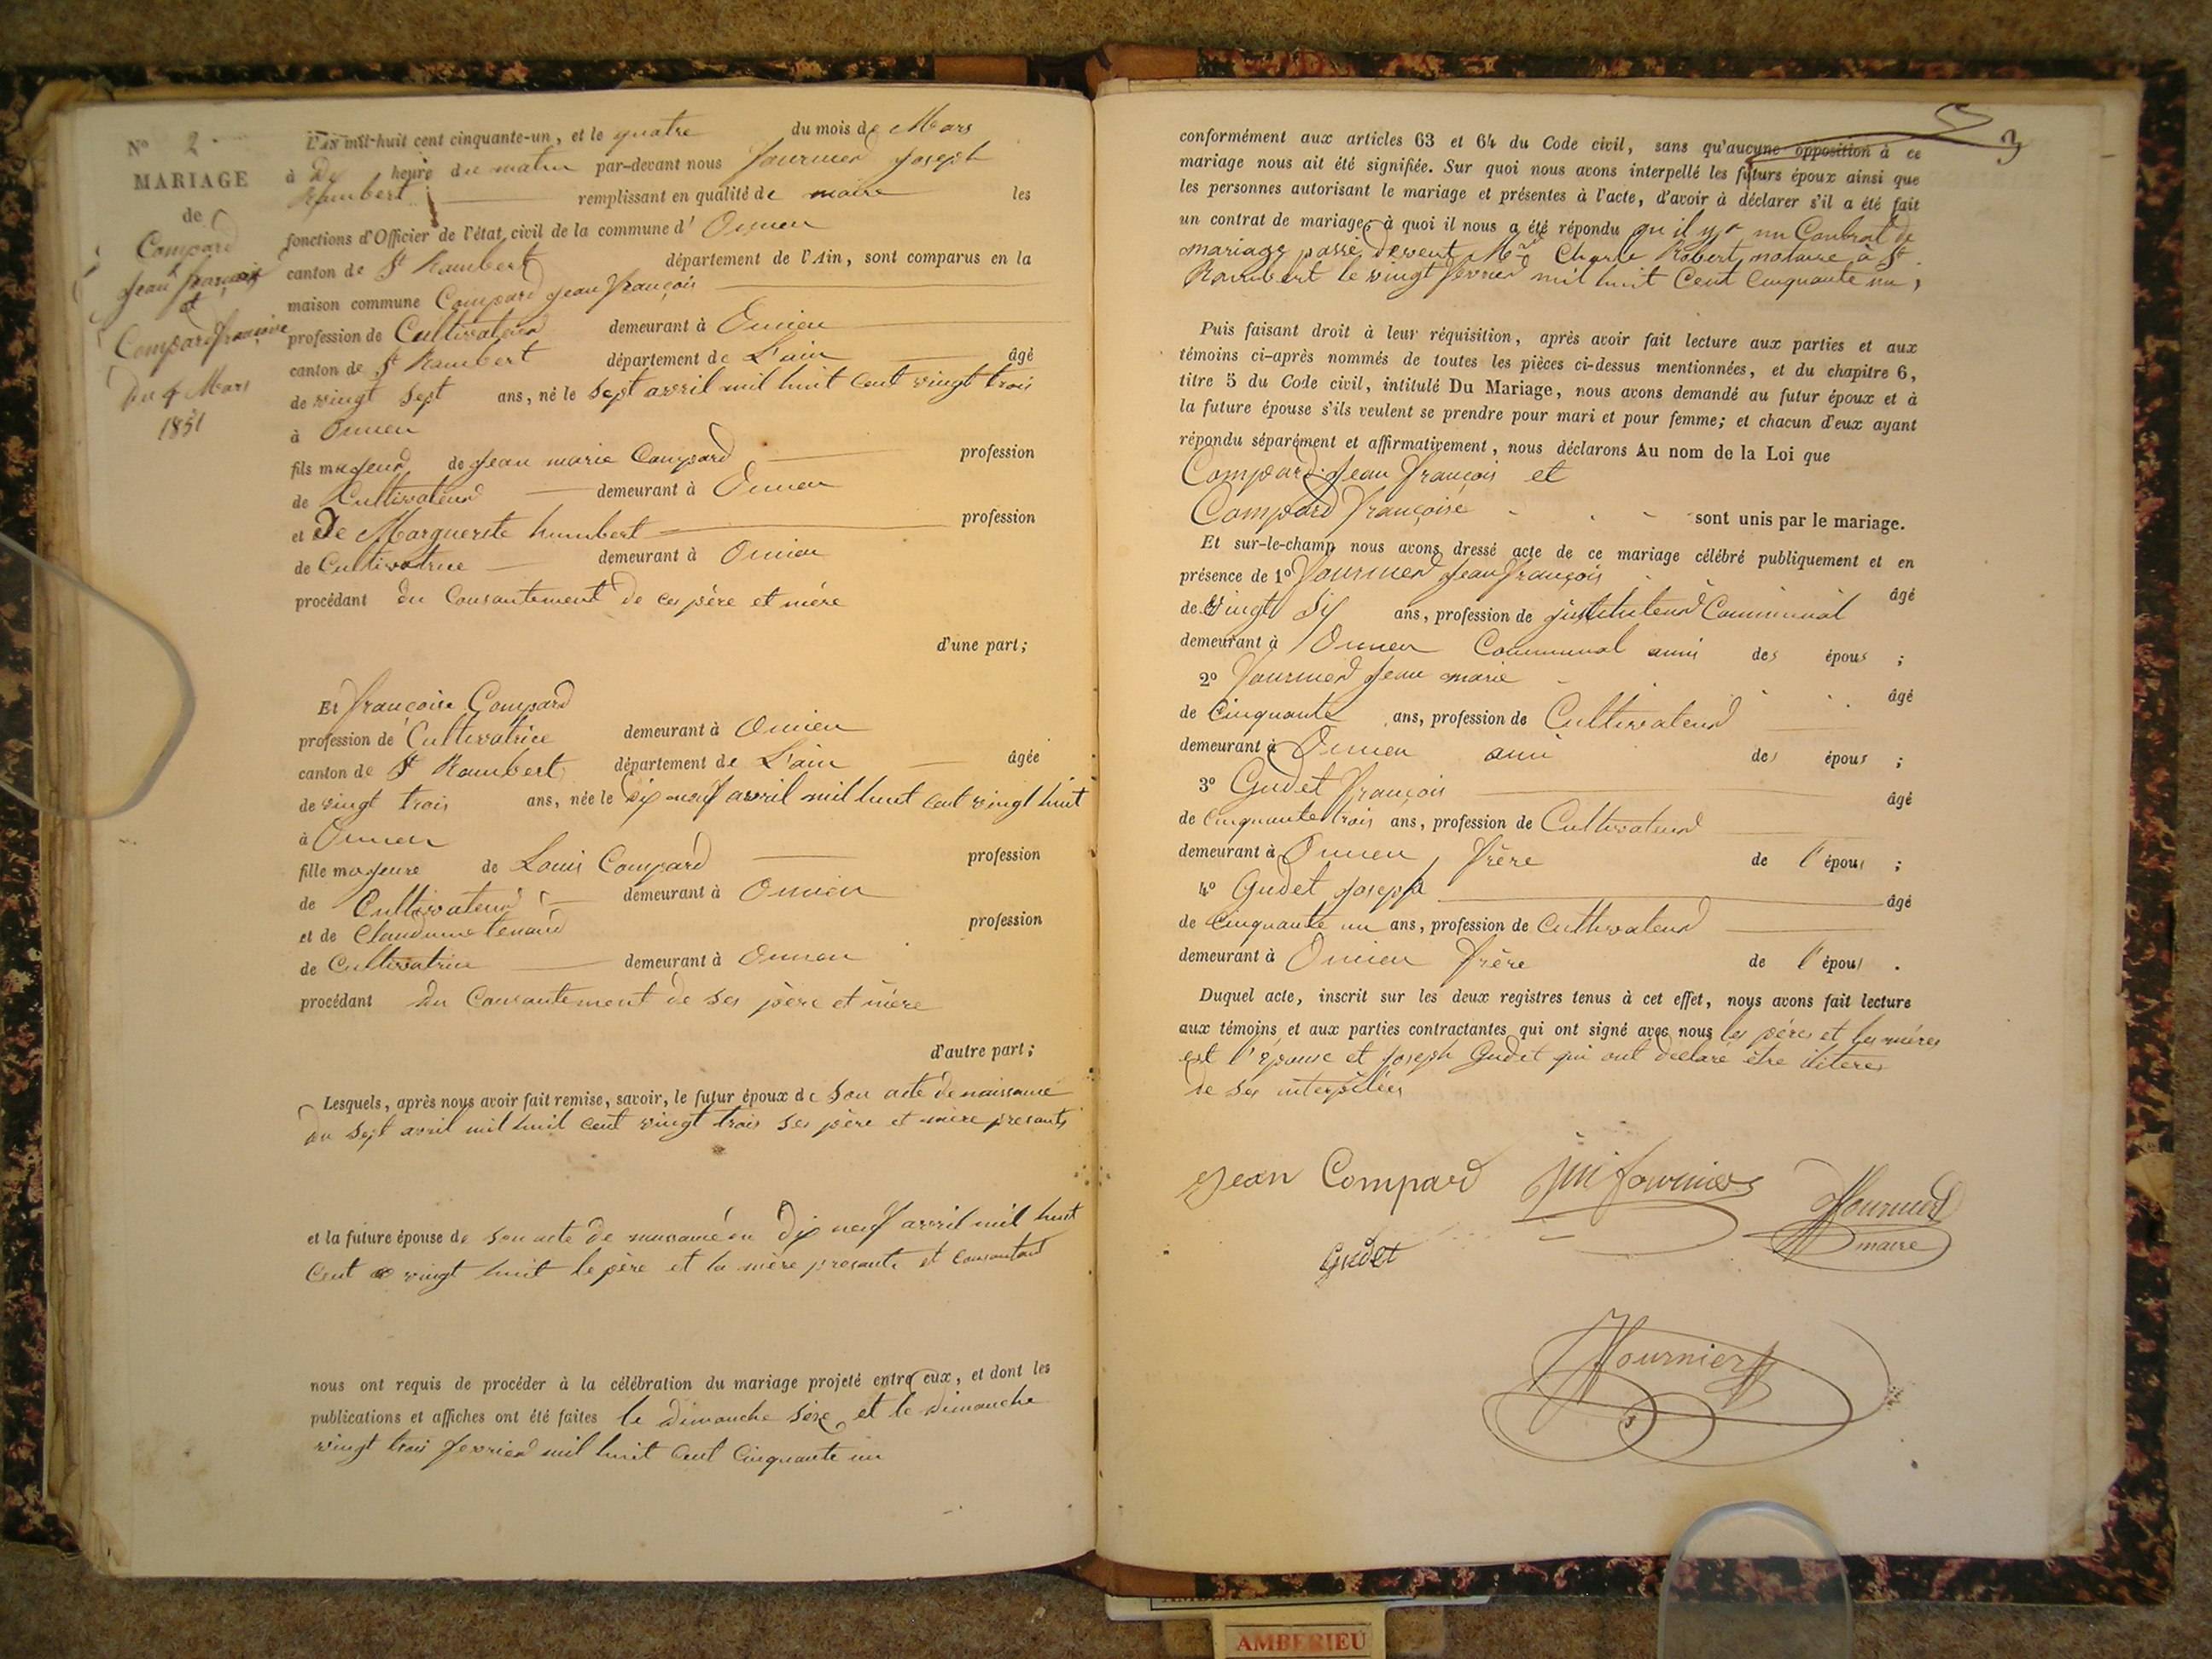 N° 2
MARIAGE
de
Compard
Jean françois
et
Compard françoise
Du 4 Mars
1851
L'AN mil-huit cent cinquante-un, et le quatre du mois de Mars
à Dix heure du matin par-devant nous fournier Joseph
Rambert remplissant en qualité de maire les
fonctions d'Officier de l'état civil de la commune d' Oncieu
canton de St Rambert département de l'Ain, sont comparus en la
maison commune Compard Jean françois
profession de Cultivateur demeurant à Oncieu
canton de St Rambert département de L'ain âgé
de vingt sept ans, né le sept avril mil huit cent vingt trois
à Oncieu
fils majeur de Jean marie Compard profession
de Cultivateur demeurant à Oncieu
et De Marguerite humbert profession
de Cultivatrice demeurant à Oncieu
procédant du Consantement de ces père et mère
d'une part;
Et françoise Compard
profession de Cultivatrice demeurant à Oncieu
canton de St Rambert département de L'ain âgée
de vingt trois ans, née le Dix neuf avril mil huit cent vingt huit
à Oncieu
fille majeure de Louis Compard profession
de Cultivateur demeurant à Oncieu
et de Claudine tenand profession
de Cultivatrice demeurant à Oncieu
procédant du Consantement de ses père et mère
d'autre part;
Lesquels, après nous avoir fait remise, savoir, le futur époux de son acte de naissance
du sept avril mil huit cent vingt trois ses père et mère presants
et la future épouse de son acte de du Dix neuf avril mil huit
Cent vingt huit le père et la mère presants et consantant
nous ont requis de procéder à la célébration du mariage projeté entre eux, et dont les
publications et affiches ont été faites le dimanche sèze et le dimanche
vingt trois fevrier mil huit cent Cinquante un
3
conformément aux articles 63 et 64 du Code civil, sans qu'aucune opposition à ce
mariage nous ait été signifiée. Sur quoi nous avons interpellé les futurs époux ainsi que
les personnes autorisant le mariage et présentes à l'acte, d'avoir à déclarer s'il a été fait
un contrat de mariage, à quoi il nous a été répondu qu'il y a un Contrat de
mariage passé devent Charle Robert notaire à St
Rambert le vingt fevrier mil huit Cent Cinquante un,
Puis faisant droit à leur réquisition, après avoir fait lecture aux parties et aux
témoins ci-après nommés de toutes les pièces ci-dessus mentionnées, et du chapitre 6,
titre 5 du Code civil, intitulé Du Mariage, nous avons demandé au futur époux et à
la future épouse s'ils veulent se prendre pour mari et pour femme; et chacun d'eux ayant
répondu séparément et affirmativement, nous déclarons Au nom de la Loi que
Compard Jean françois et
Compard françoise sont unis par le mariage.
Et sur-le-champ nous avons dressé acte de ce mariage célébré publiquement et en
présence de 1° fournier Jean françois âgé
de vingt six ans, profession de jnstituteur Communal
demeurant à Oncieu Communal ami des épous ;
2° fournier Jean marie âgé
de Cinquante ans, profession de Cultivateur
demeurant à Oncieu ami des épous ;
3° Gudet françois âgé
de Cinquante trois ans, profession de Cultivateur
demeurant à Oncieu, frère de l'épous ;
4° Gudet Joseph âgé
de Cinquante un ans, profession de Cultivateur
demeurant à Oncieu frère de l'épous .
Duquel acte, inscrit sur les deux registres tenus à cet effet, nous avons fait lecture
aux témoins et aux parties contractantes qui ont signé avec nous les péres et les méres
est l'épouse et Joseph Gudet qui ont declaré être iliteres
de ses interpelées
Jean Compard jm fournier fournier
maire
Gudet
fournier
AMBERIEU